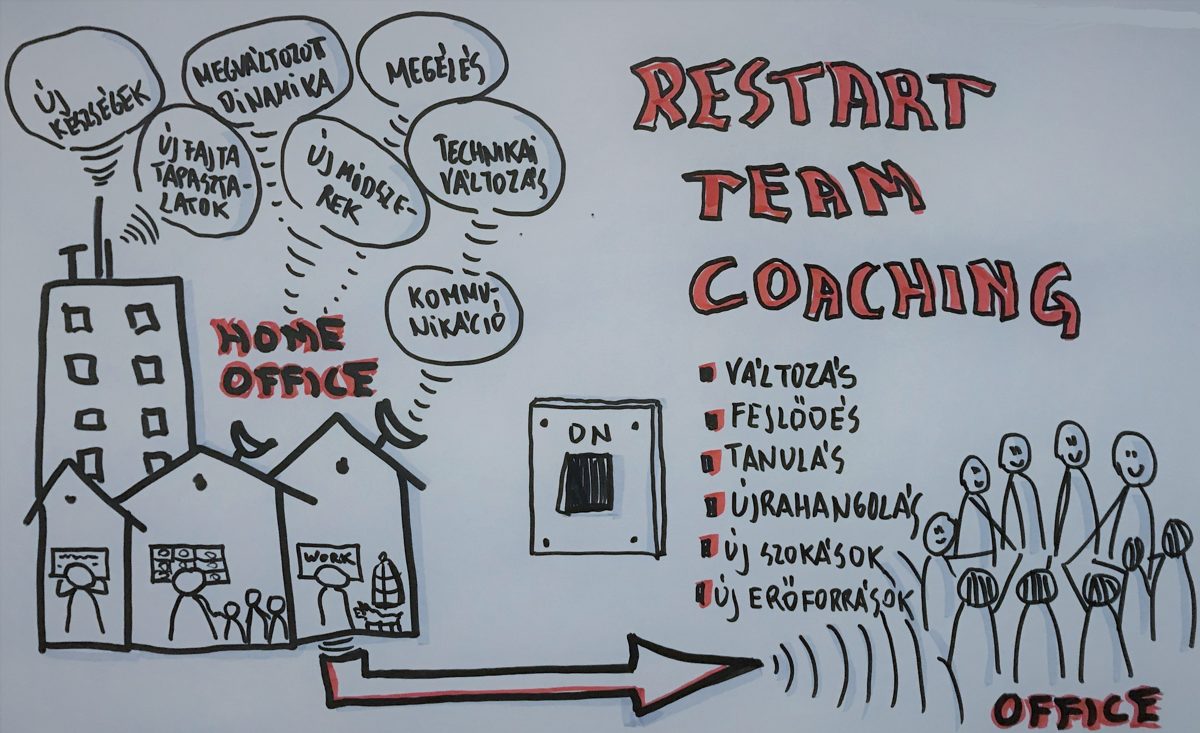 ÚJ
KÉSZSÉGEK
MEGVÁLTOZOT
DINAMIKA
MEGÉLÉS
ÚJ FAJTA
TAPASZTA-
LATOK
ÚJ MÓDSZE-
REK
TECHNIKAI
VÁLTOZÁS
KOMMU-
NIKÁCIÓ
HOME
OFFICE
WORK
ON
RESTART
TEAM
COACHING
VÁLTOZÁS
FEJLŐDÉS
TANULÁS
ÚJRAHANGOLÁS
ÚJ SZOKÁSOK
ÚJ ERŐFORRÁSOK
OFFICE